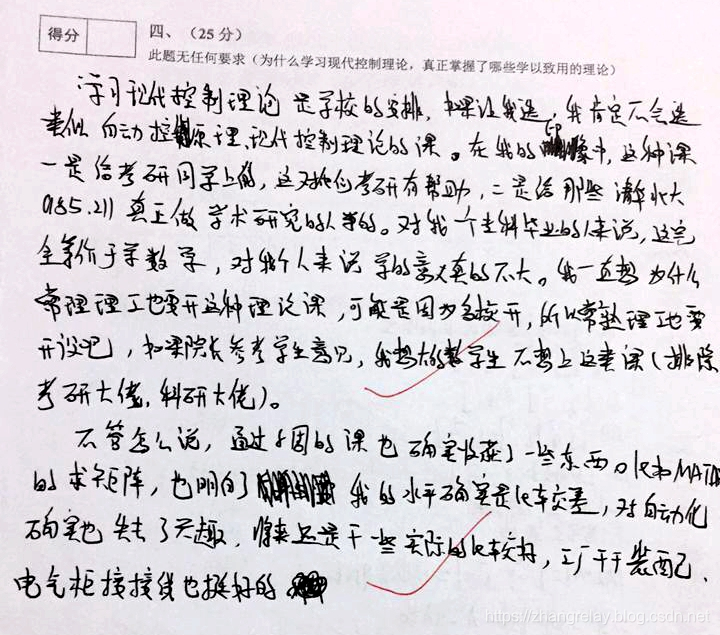 得分
四、（25 分）
此题无任何要求（为什么学习现代控制理论，真正掌握了哪些学以致用的理论）
学习现代控制理论是学校的安排，如果让我选，我肯定不会选
类似自动控制原理、现代控制理论的课。在我的印象中，这种课
一是给考研同学上的，这对他们考研有帮助，二是给那些清华北大
985.211 真正做学术研究的人学的。对我一个本科毕业的人来说，这完
全等价于学数学，对我个人来说学的意义真的不大。我一直想为什么
常理理工也要开这种理论课，可能是因为名校开，所以常熟理工也要
开设吧，如果院长参考学生意见，我想大的数学生不想上这类课（排除
考研大佬，科研大佬）。
不管怎么说，通过8周的课也确实收获了一些东西。比如MATLAB
的求矩阵，也明白了我的水平确实是比较差，对自动化
确实也失去了兴趣，将来还是干一些实际的比较好，工厂干干装配、
电气柜接接线也挺好的
https://zhangrelay.blog.csdn.net